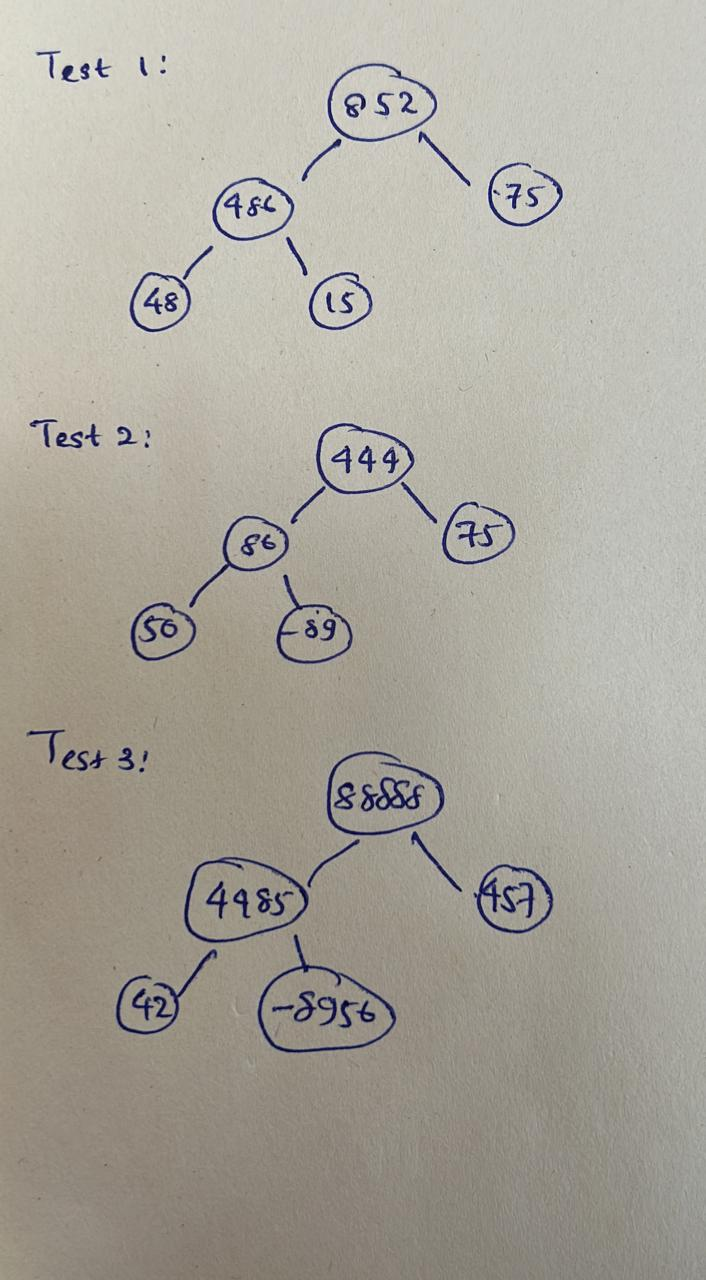 Test 1:
852
486
75
48
15
Test 2:
444
86
75
50
-89
Test 3:
88888
4985
457
42
-8956